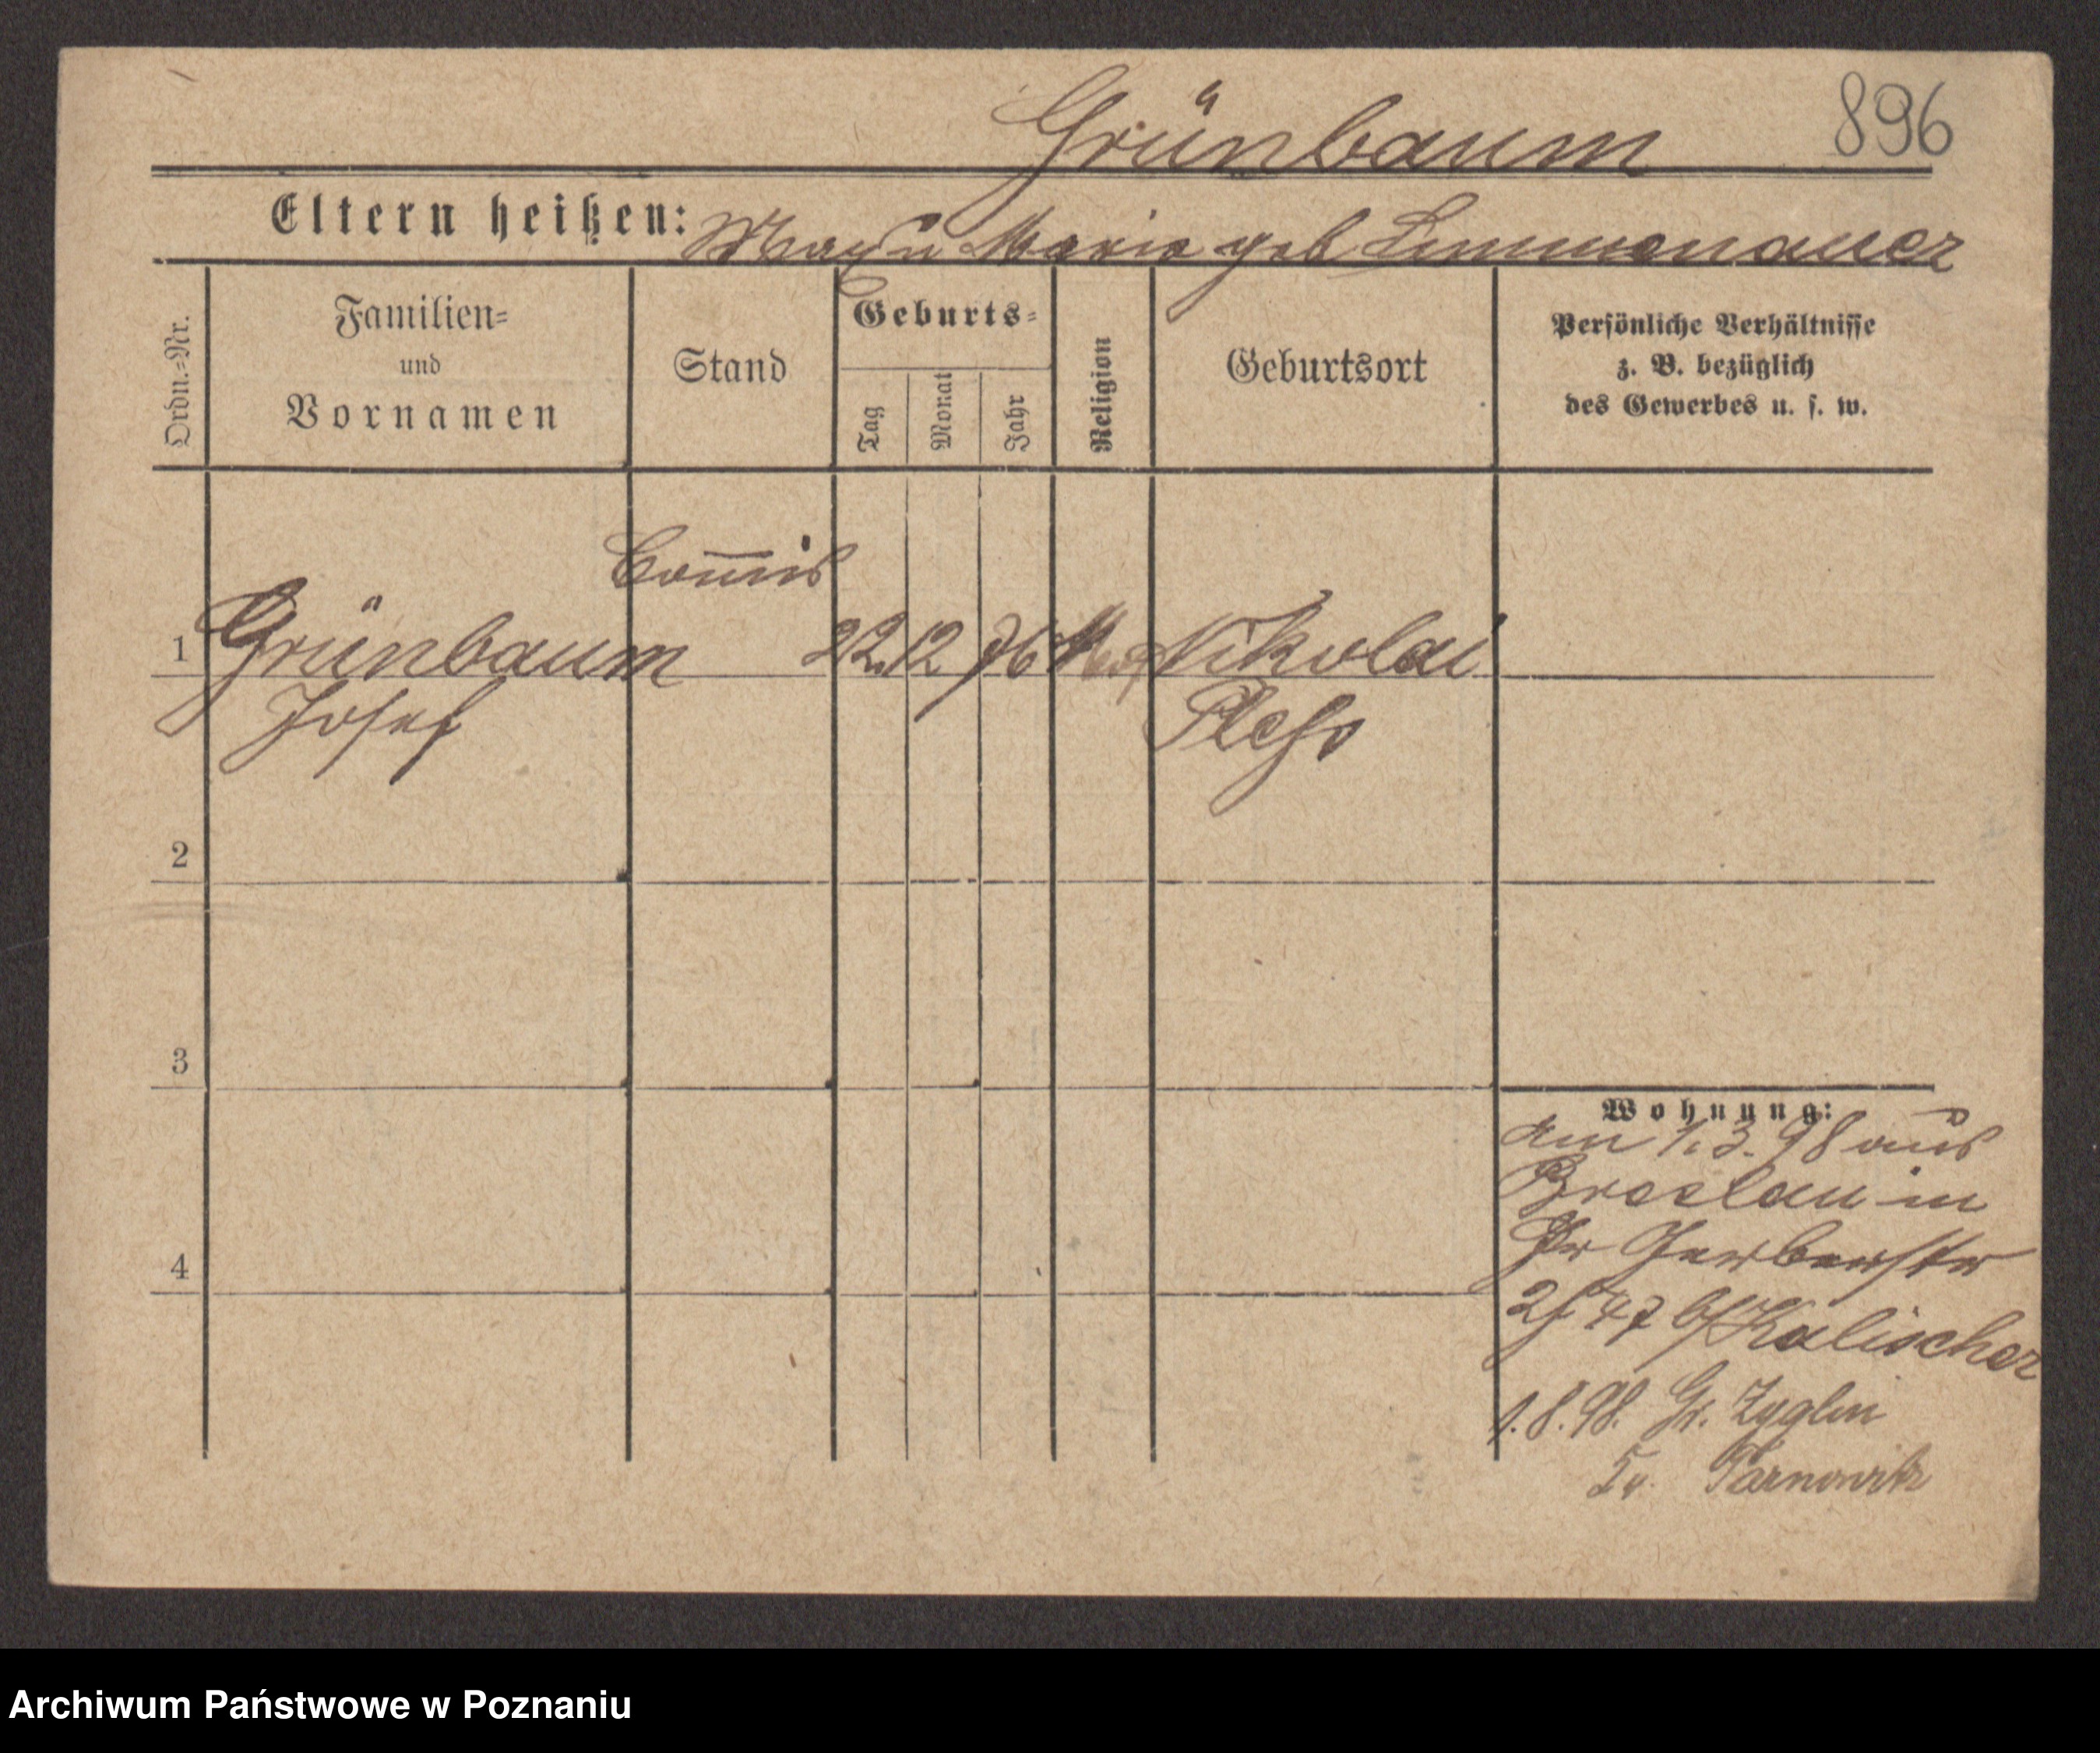 Grünbaum 896
Eltern heißen: Max u Marie geb
Ordn.=Nr.
Familien=
und
Vornamen
Stand
Geburts=
Tag
Monat
Jahr
Religion
Geburtsort
Persönliche Verhältnisse
z. B. bezüglich
des Gewerbes u. s. w.
Com̅is
1 Grünbaum 22. 12 76 Nikolai
Josef Pless
2
3
4
Wohnung:
am 1.3.98 aus
Breslau in
Gerberstr
47 Kalischer
1.8.98. Gr. Zyglin
Tarnowitz
Archiwum Państwowe w Poznaniu